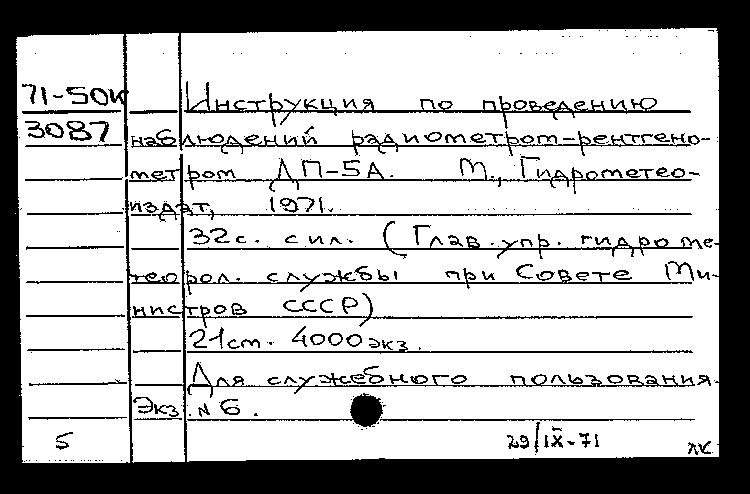 71-50к Инструкция по проведению
3087 наблюдений радиометром-рентгено-
метром ДП-5А. М., Гидрометео-
издат, 1971.
32с. с ил. (Глав. упр. гидроме-
теорол. службы при Совете Ми-
нистров СССР)
21см. 4000экз.
Для служебного пользования.
Экз. №6.
5 29/IX-71 лк